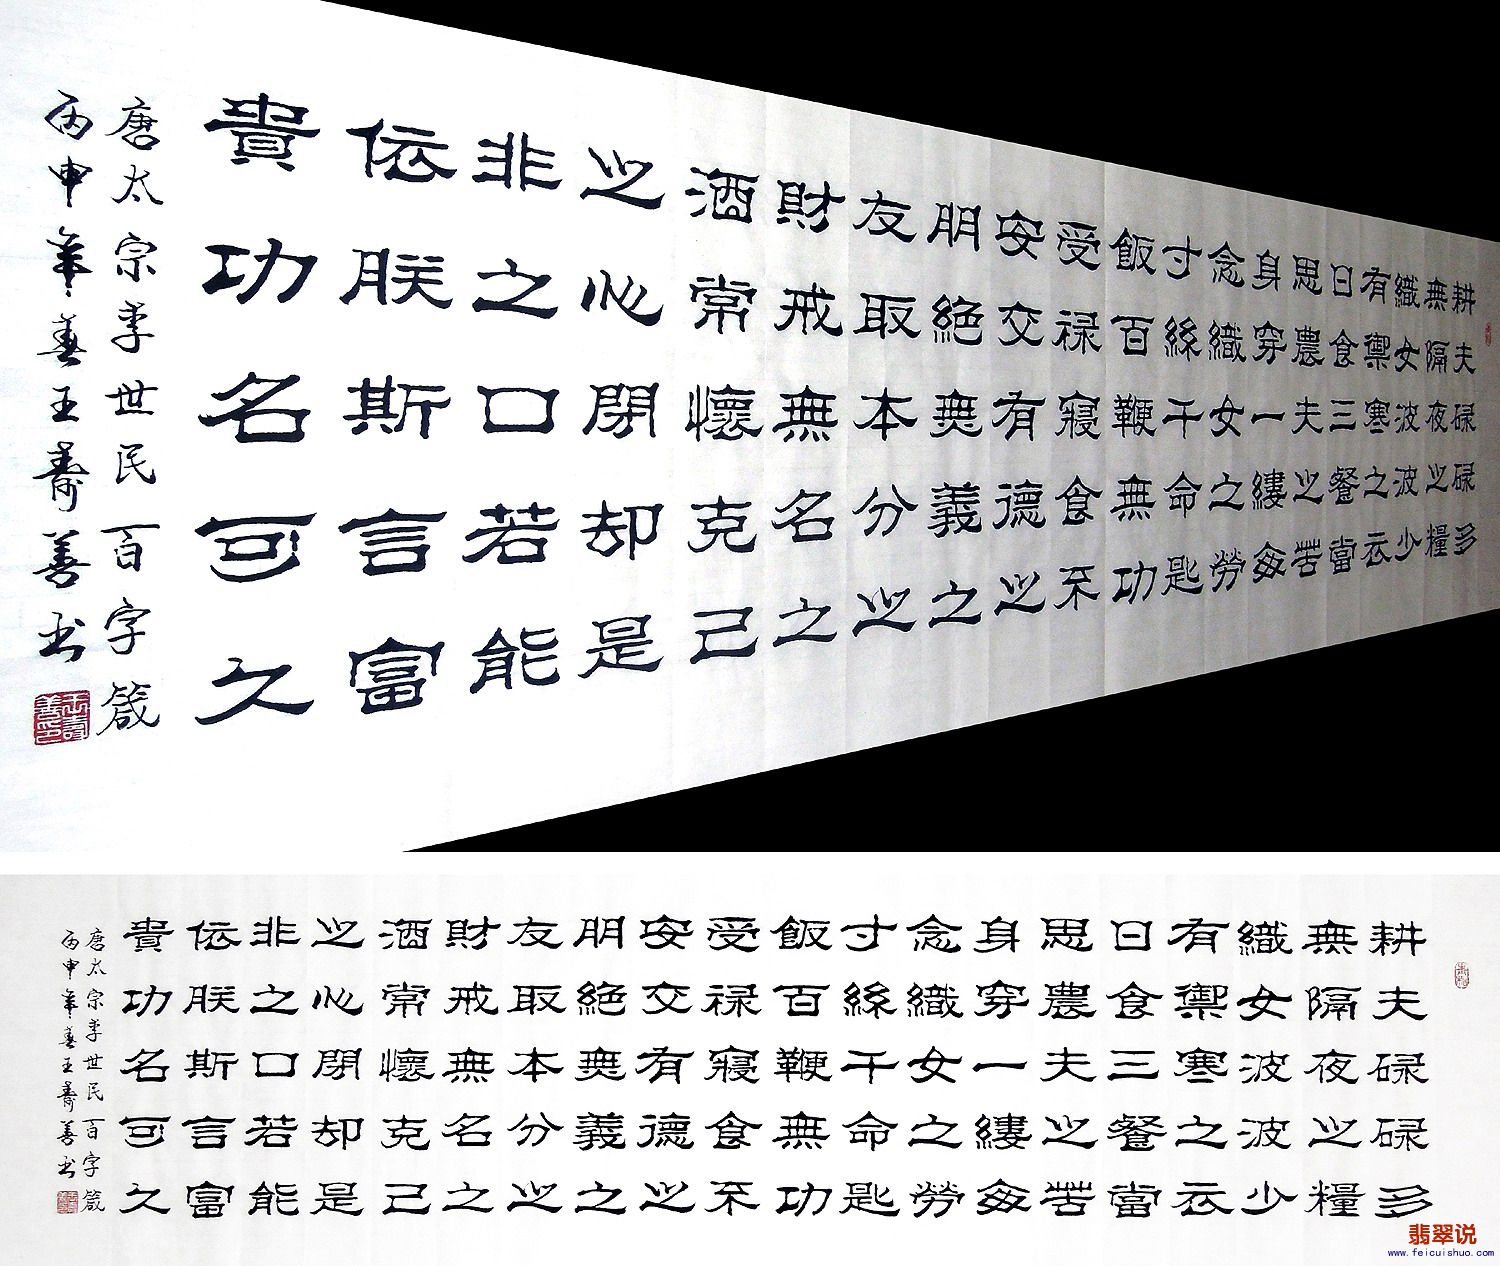 耕夫碌碌多
無隔夜之糧
織女波波少
有禦寒之衣
日食三餐當
思農夫之苦
身穿一縷每
念織女之勞
寸絲千命匙
飯百鞭無功
受禄寢食不
安交有德之
朋絕無義之
友取本分之
財戒無名之
酒常懷克己
之心閉却是
非之口若能
依朕斯言富
貴功名可久
唐太宗李世民百字箴
丙申年王壽善书
王壽善印
耕夫碌碌多
無隔夜之糧
織女波波少
有禦寒之衣
日食三餐當
思農夫之苦
身穿一縷每
念織女之勞
寸絲千命匙
飯百鞭無功
受禄寢食不
安交有德之
朋絕無義之
友取本分之
財戒無名之
酒常懷克己
之心閉却是
非之口若能
依朕斯言富
貴功名可久
唐太宗李世民百字箴
丙申年王壽善书
翡翠说
www.feicuishuo.com